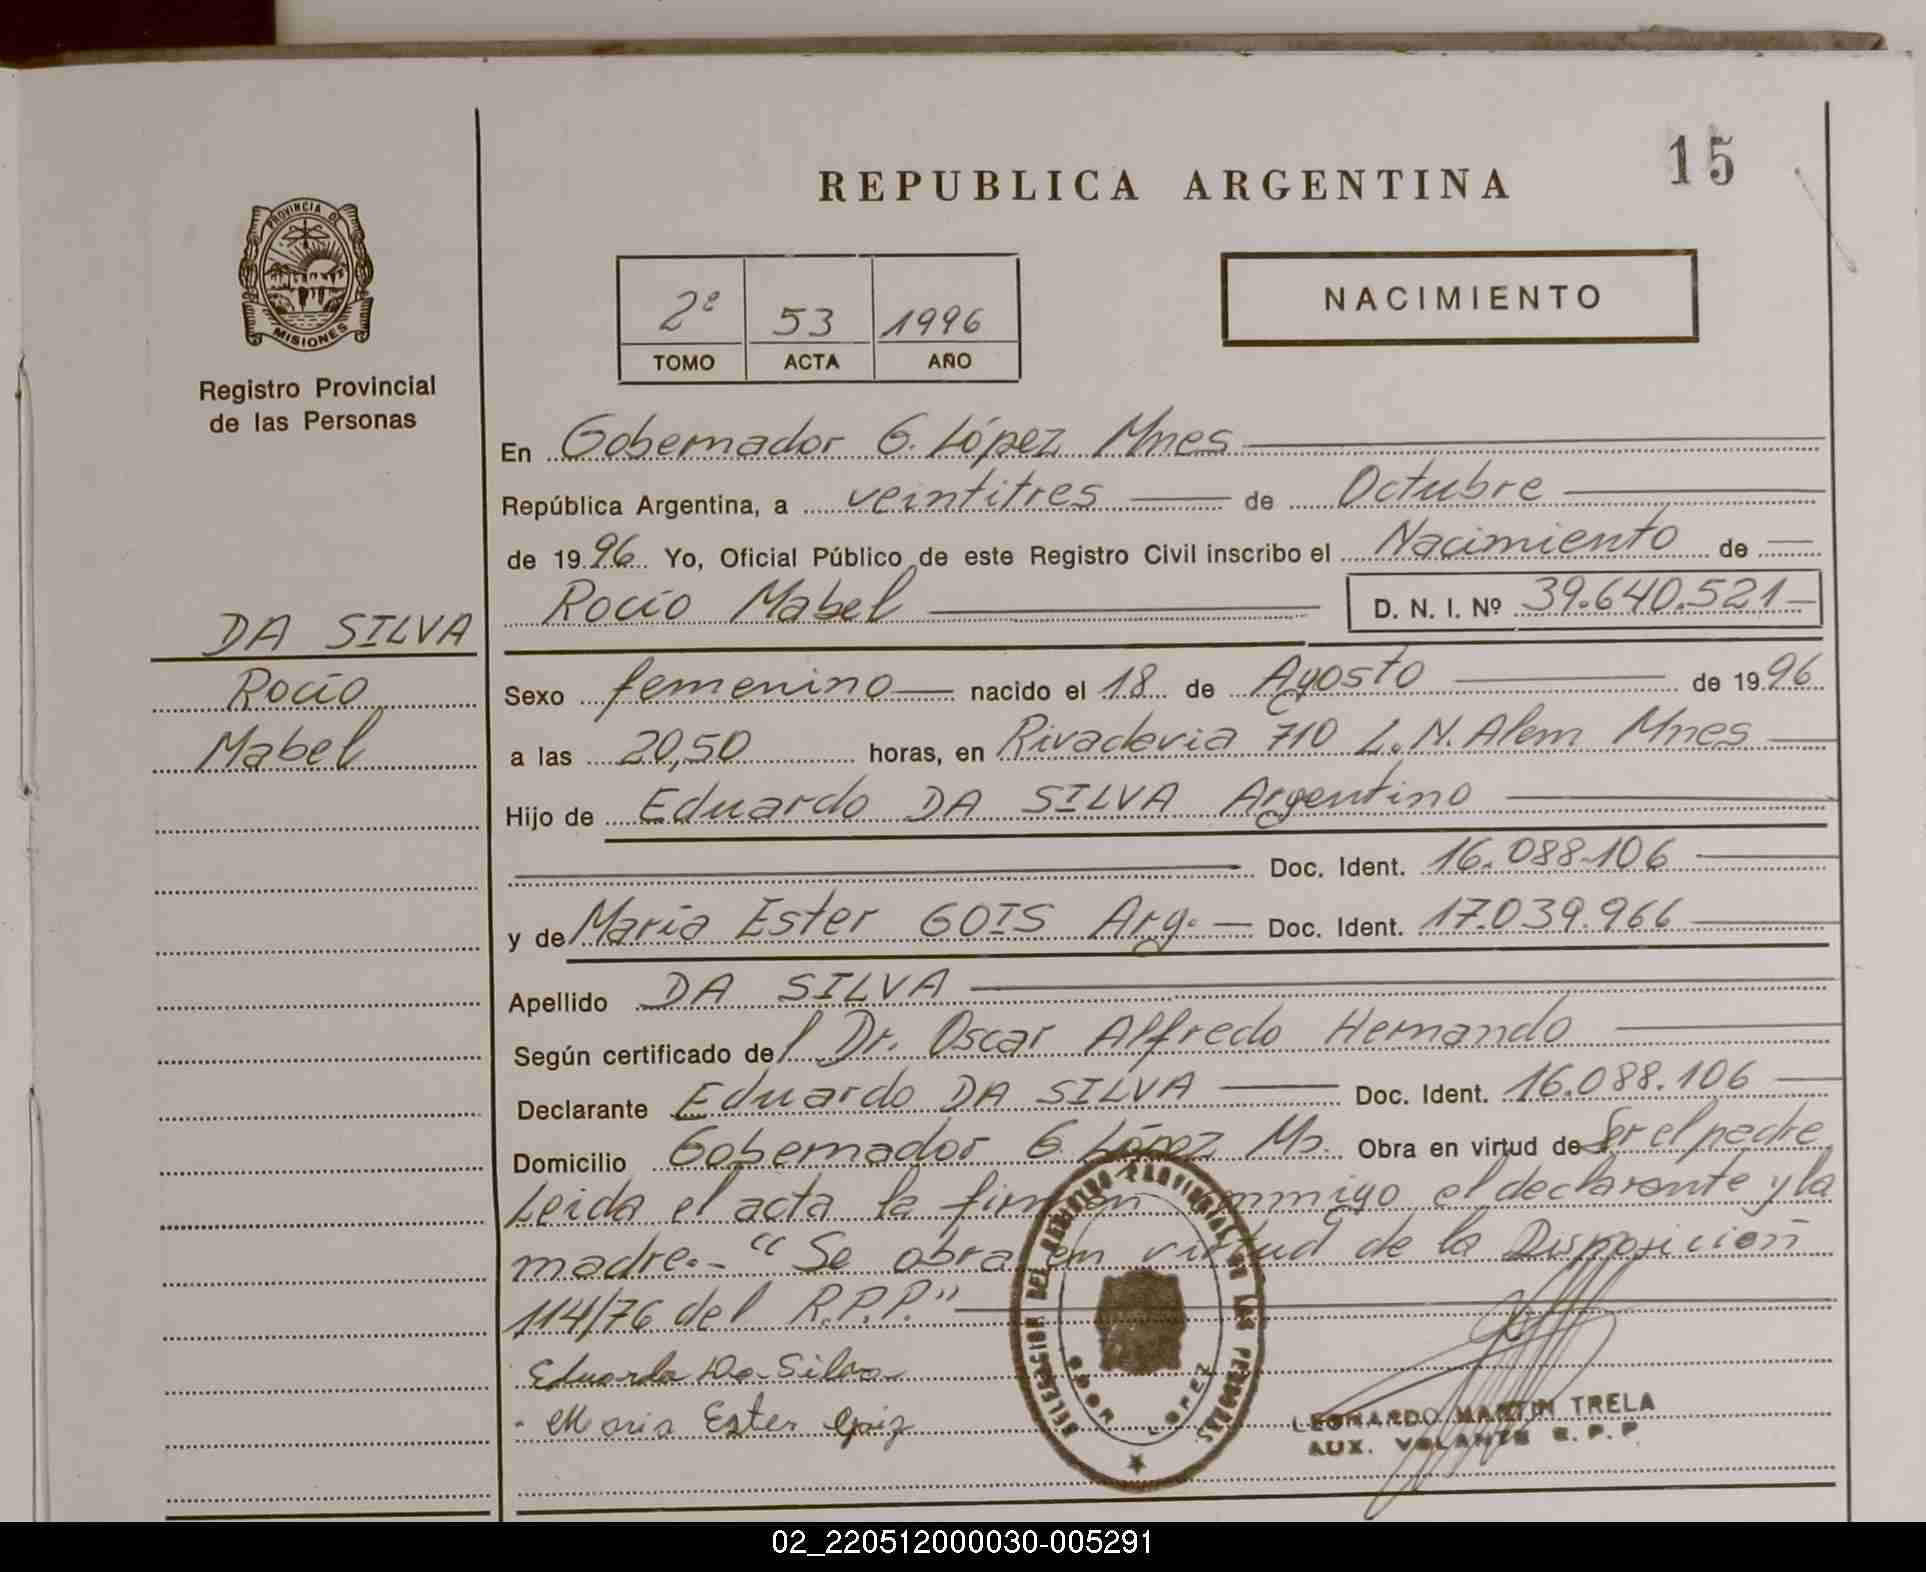 15
REPUBLICA ARGENTINA
PROVINCIA DE
MISIONES
Registro Provincial
de las Personas
2º 53 1996
TOMO ACTA AÑO
NACIMIENTO
En Gobernador G. López Mnes
República Argentina, a veintitres de Octubre
de 1996 Yo, Oficial Público de este Registro Civil inscribo el Nacimiento de
Rocío Mabel D. N. I. Nº 39.640.521
DA SILVA
Rocío
Mabel
Sexo femenino nacido el 18 de Agosto de 1996
a las 20,50 horas, en Rivadavia 710 L. N. Alem Mnes
Hijo de Eduardo DA SILVA Argentino
Doc. Ident. 16.088.106
y de María Ester GOIS Arg. Doc. Ident. 17.039.966
Apellido DA SILVA
Según certificado del Dr. Oscar Alfredo Hernando
Declarante Eduardo DA SILVA Doc. Ident. 16.088.106
Domicilio Gobernador G López Ms. Obra en virtud de Ser el padre
Leida el acta la firman conmigo el declarante y la
madre.- "Se obra en virtud de la Disposición
114/76 del R.P.P."
Eduardo Da Silva
Maria Ester
DELEGACION DEL REGISTRO PROVINCIAL DE LAS PERSONAS
LOPEZ
LEONARDO MARTIN TRELA
AUX. VOLANTE R. P. P.
02_220512000030-005291